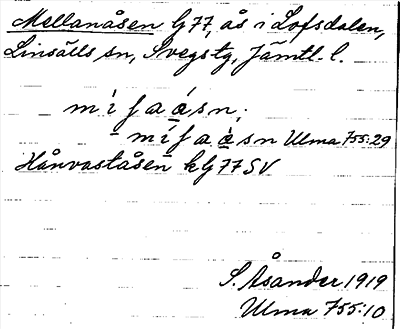 Mellanåsen G 77, ås i Lofsdalen,
Linsälls sn, Svegs tg, Jämtl. l.
m í f a ǻ s n,
m í f a ǻ s n Ulma 755:29
Hånvaståsen k G 77 SV
S. Åsander 1919
Ulma 755:10